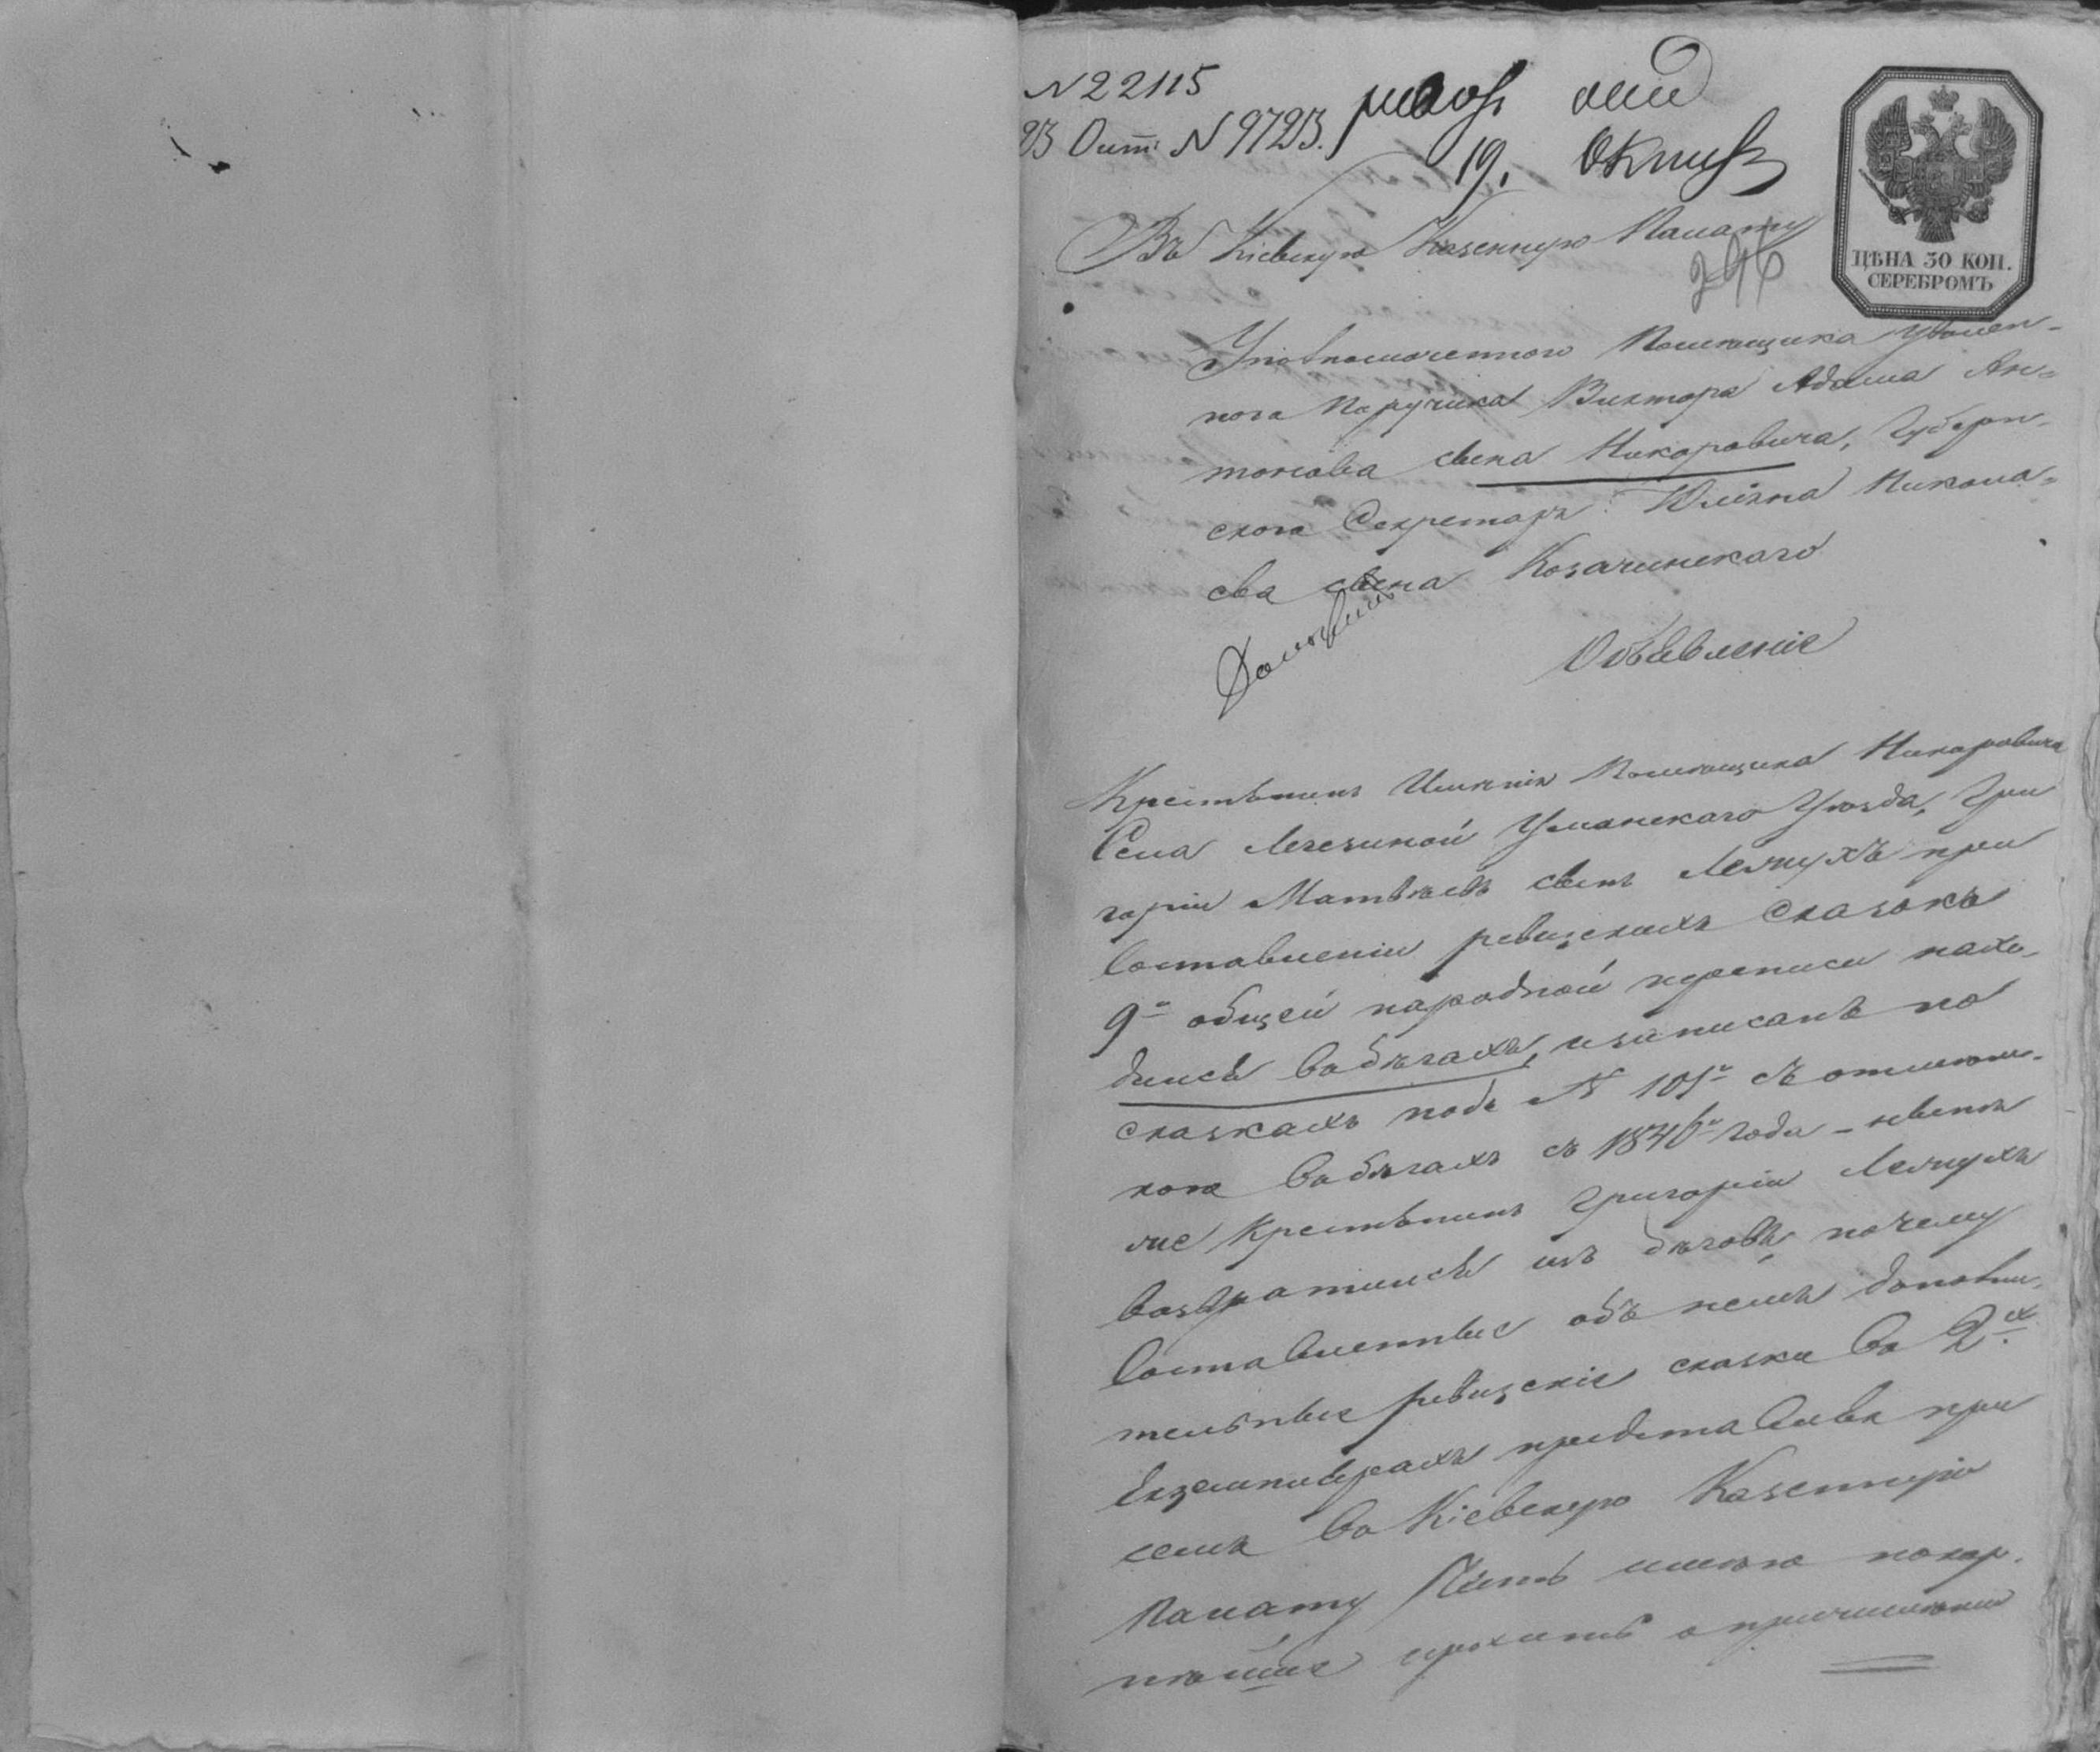 N 22115
23 Окт: N 9723.
19. Октяб
ЦѢНА 30 КОП.
СЕРЕБРОМЪ
Въ Кіевскую Казенную Палату
296
Уповномоченного Помещика уволен-
ного Поручика Виктора Адама Ан-
тонова сына Никоровича, Губерн-
ского Секретаря Юліяна Никола-
ева сына Козачинскаго
Объявленіе
Крестьянин Имѣнія Помѣщика Никоровича
Села Легезиной Уманскаго Уѣзда, Гри
горій Матвѣевъ сынъ Лемухъ при
Составленіи ревизскихъ Сказокъ
9й общей народной переписи нахо-
дился вобѣгахъ, и записанъ по
сказкахъ подъ N 101м съ отмѣт-
кою вобѣгахъ съ 1846го года – нынѣ
же Крестьянинъ Григорій Лемухъ
возвратился изъ бѣговъ, почему
Составленные объ немъ дополни-
тельные ревизскіе сказки во 2х
Екземплярахъ представляя при
семъ во Кіевскую Казенную
Палату имѣю покор-
нѣйше просить о причисленіи